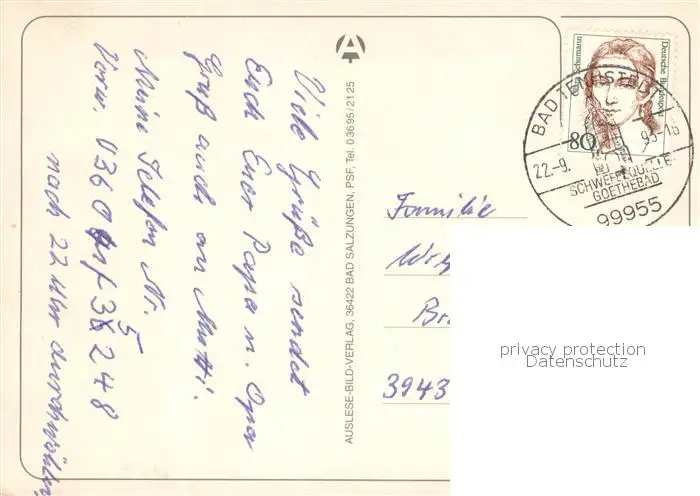 Viele Grüße sendet
Euch Euer Papa u. Opa
Gruß auch an Mutti.
Meine Telefon Nr.
Vorw. 03604
248
nach 22 Uhr durchwählen
AUSLESE-BILD-VERLAG, 36422 BAD SALZUNGEN, PSF, Tel. 03695/2125
Clara Schumann
Deutsche Bundespost
80
BAD TENNSTEDT
22.-9.
93-16
SCHWEFELQUELLE
GOETHEBAD
99955
Familie
3943
privacy protection
Datenschutz